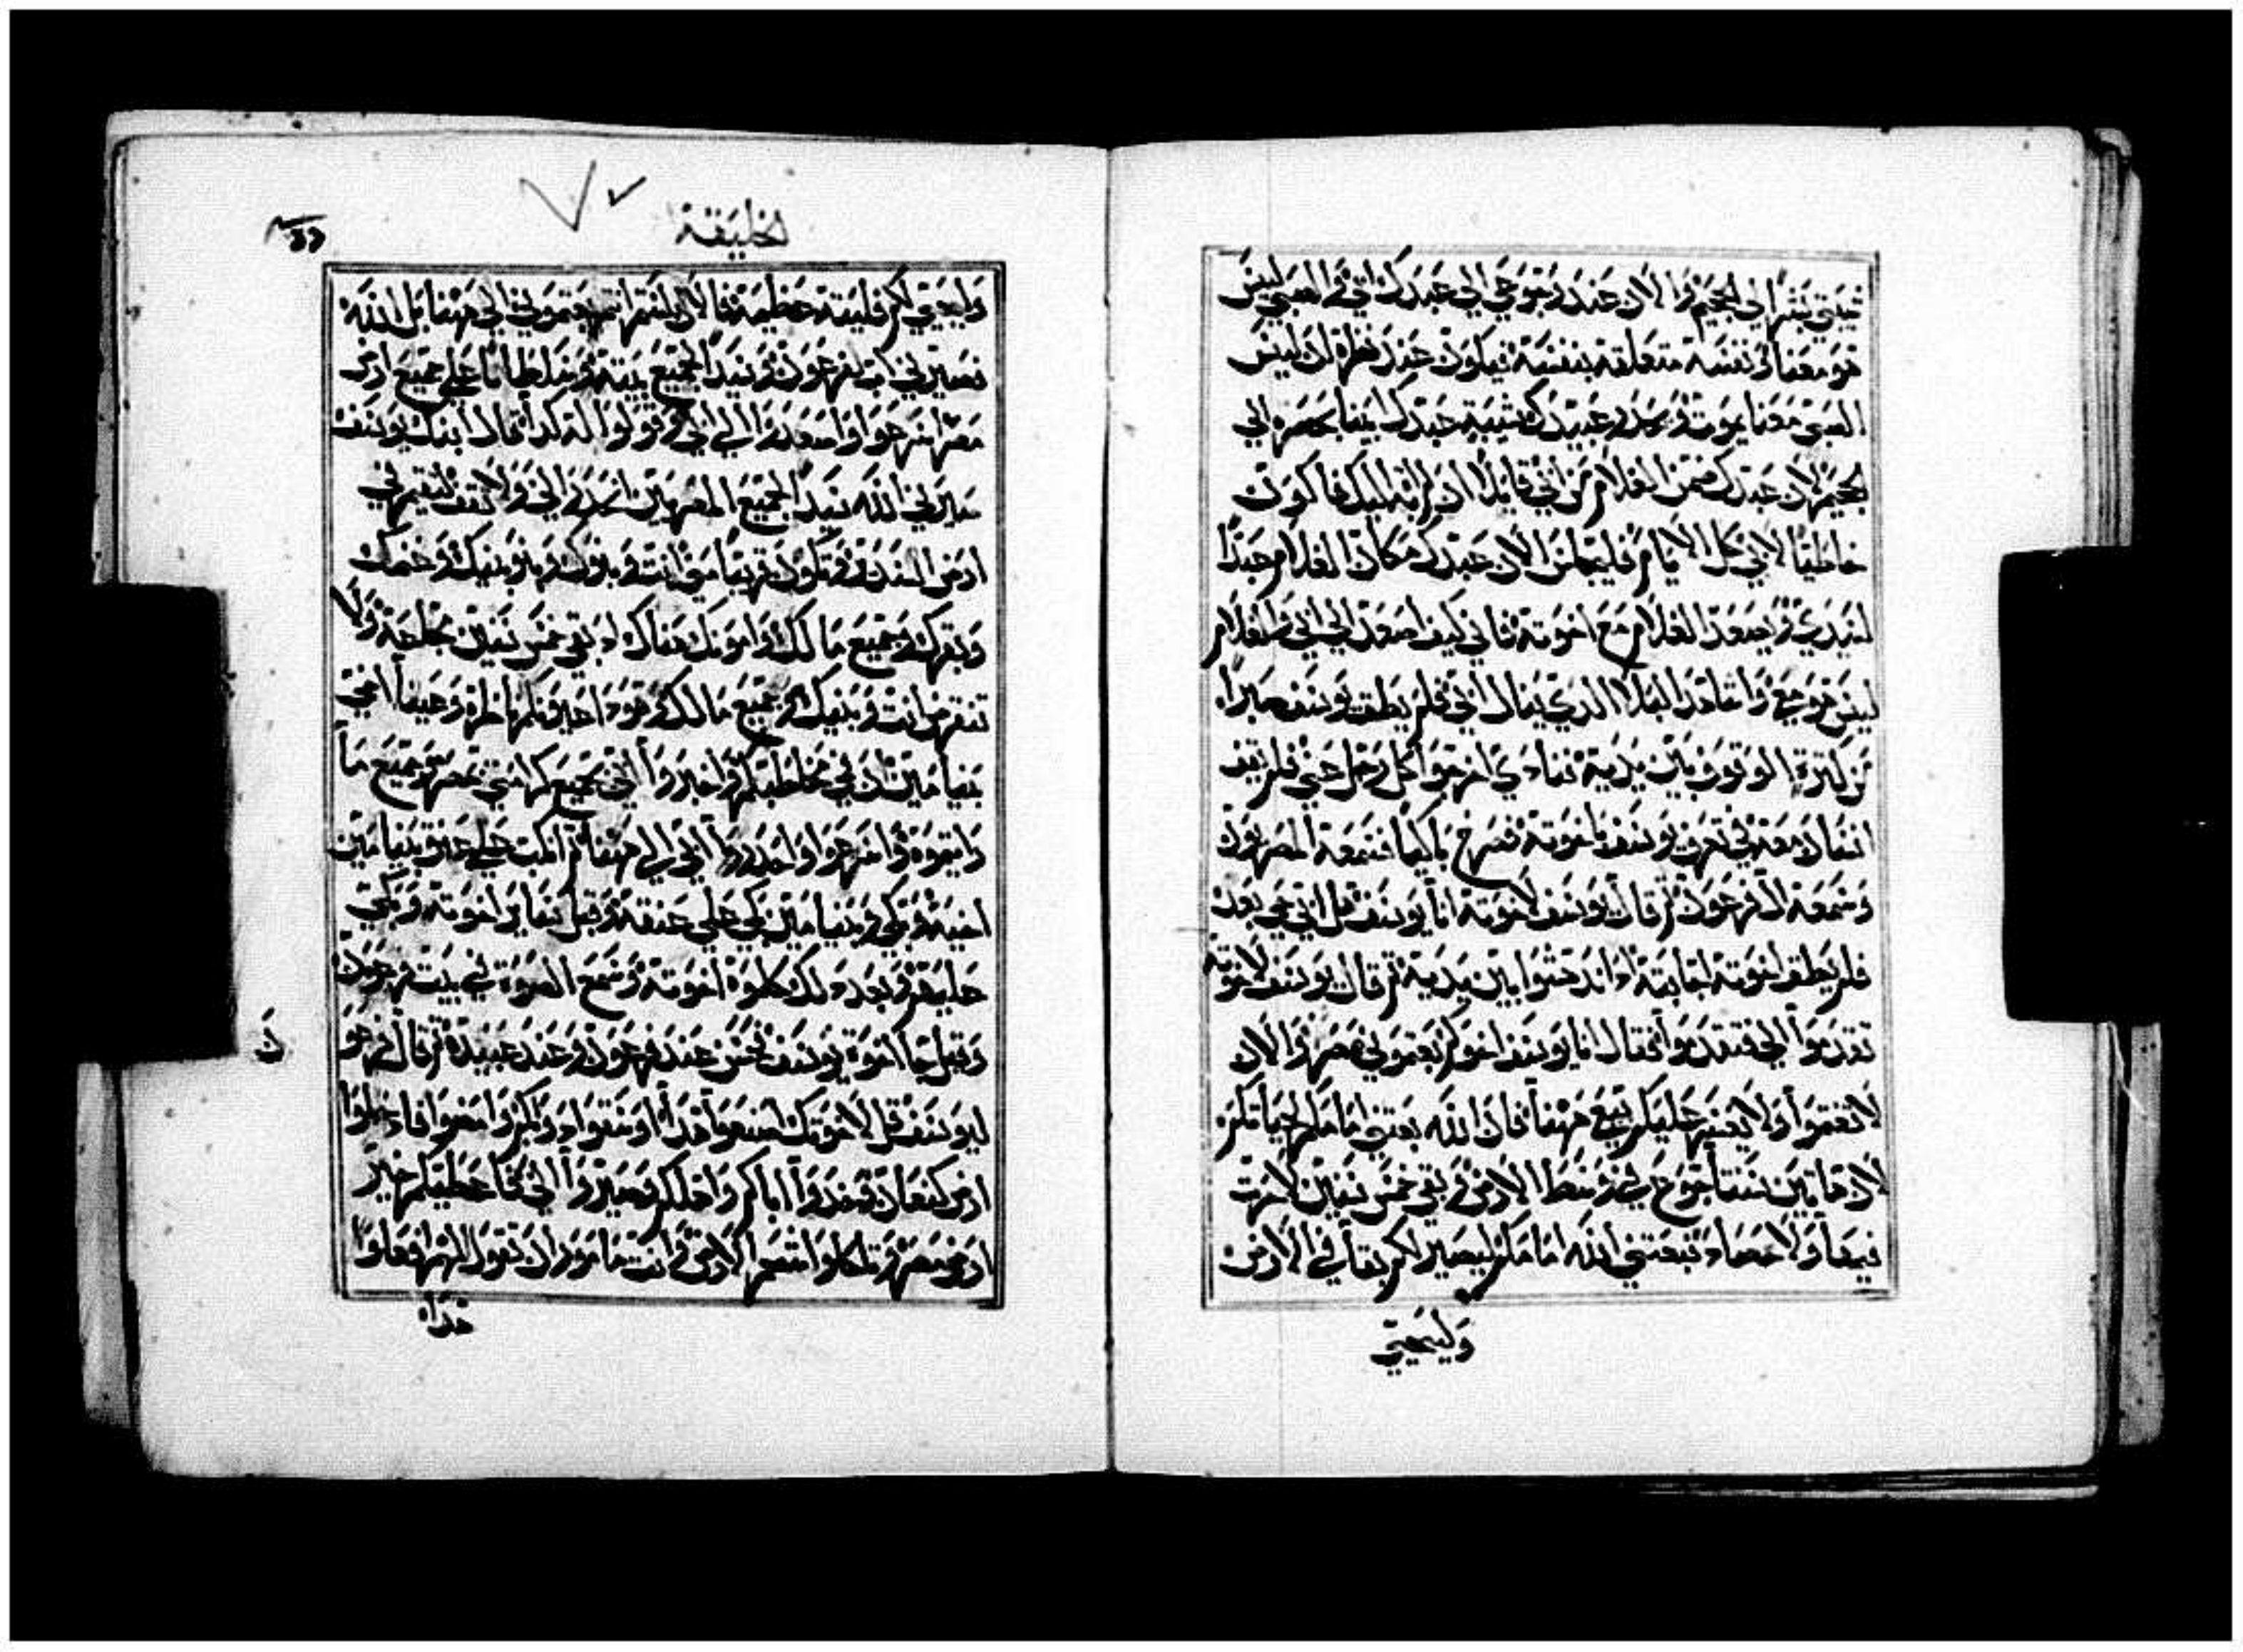 شيبتي بشرًا الي الجحيم والان عند رجوعي الي عبدك ابي والصبي ليس
هو معنا ونفسه متعلقة بنفسه فيكون عند نظره ان ليس
الصبي معنا يموت وينزلوا عبيدك شيبة عبدك ابينا بحسره الي
الجحيم لان عبدك ضمن الغلام من ابي قايلًا ان لم اته اليك فاكون
خاطيًا لابي كل الايام فليجلس الان عبدك مكان الغلام عبدًا
لسيدي ويصعد الغلام مع اخوته فاني كيف اصعد الي ابي والغلام
ليس هو معي واشاهد البلا الذي ينال ابي فلم يطق يوسف صبرًا
من كثرة الوقوف بين يديه فنادي اخرجوا كل رجل عني فلم يقف
انسان معه في تعرف يوسف باخوته فصرخ باكيًا فسمعه المصريون
وسمعه ال فرعون ثم قال يوسف لاخوته انا يوسف هل ابي حي بعد
فلم يطق اخوته اجابته اذ اندهشوا بين يديه ثم قال يوسف لاخوته
تقدموا الي فتقدموا فقال انا يوسف اخوكم بعتموني لمصر والان
لا تغتموا ولا يعسر عليكم بيعي ههنا فان الله بعثني امامكم لحياتكم
لان هاتين سنتا جوع في وسط الارض وبقي خمس سنين لا حرث
فيها ولا حصاد فبعثني الله امامكم ليصير لكم بقا في الارض
وليحيي
خليقة
وليحيي لكم خليقة عظيمة فالان لستم انتم بعتموني الي ههنا بل الله
نصيرني اب لفرعون وسيدًا لجميع بيته وسلطانًا علي جميع ارض
مصر اسرعوا واصعدوا الي ابي وقولوا له كذا قال ابنك يوسف
صيرني الله سيدًا لجميع المصريين انزل الي ولا تقف لتقيم في
ارض السدير وتكون قريبًا مني انت وبنوك وبنو بنيك وغنمك
وبقرك وجميع ما لك وامونك هناك اذ بقي خمس سنين مجاعة ولا
تنقرض انت وبنيك وجميع ما لك وهوذا اعينكم ناظره وعينا اخي
بنيامين ان في مخاطبكم واخبروا ابي بجميع كرامتي بمصر وجميع ما
رايتموه واسرعوا واحدروا ابي الي ههنا ثم انكب علي عنق بنيامين
اخيه وبكي وبنيامين بكي علي عنقه وقبل سايد اخوته وبكي
عليهم وبعد ذلك كلموه اخوته وسمع الصوت في بيت فرعون
وقيل جا اخوة يوسف فحسن عند فرعون وعند عبيده ثم قال فرعو
ن
ليوسف قل لاخوتك اصنعوا هذا اوسقوا دوابكم وامضوا فادخلوا
ارض كنعان وخذوا اباكم واهلكم وصيروا الي فاعطيكم خير
ارض مصر وتاكلوا شحم الارض وانت مامور ان تقول لهم افعلوا
هذا